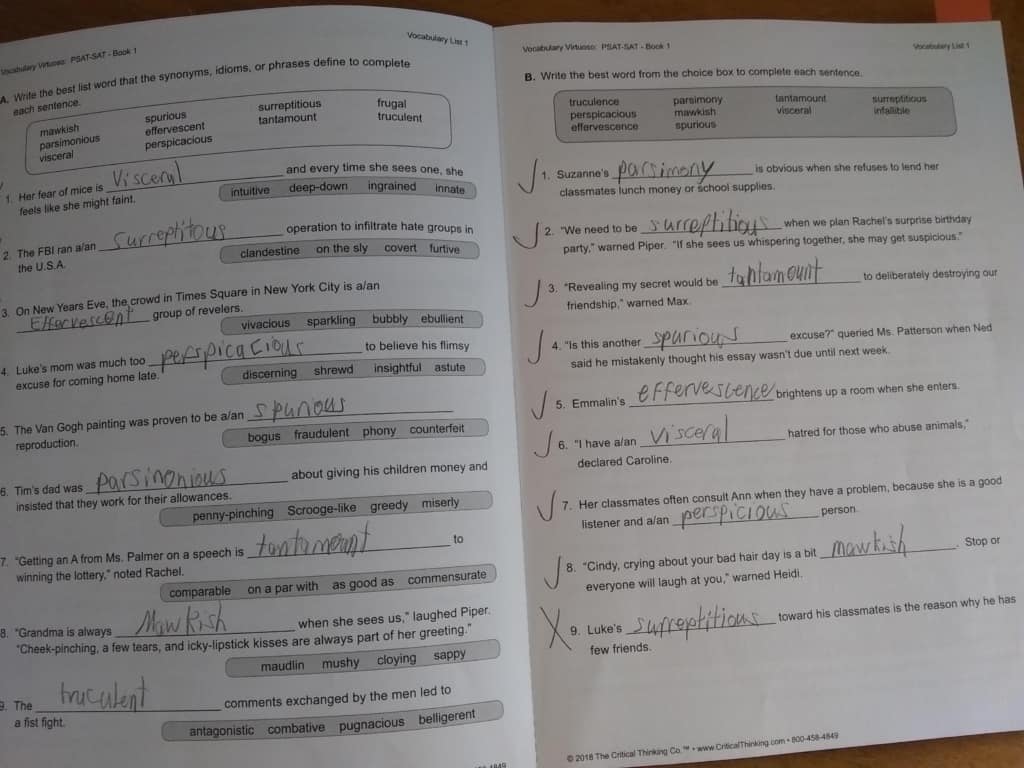 Vocabulary Virtuoso: PSAT-SAT - Book 1
Vocabulary List 1
A. Write the best list word that the synonyms, idioms, or phrases define to complete
each sentence.
mawkish spurious surreptitious frugal
parsimonious effervescent tantamount truculent
visceral perspicacious
1. Her fear of mice is Visceral and every time she sees one, she
feels like she might faint.
intuitive deep-down ingrained innate
2. The FBI ran a/an Surreptitous operation to infiltrate hate groups in
the U.S.A.
clandestine on the sly covert furtive
3. On New Years Eve, the crowd in Times Square in New York City is a/an
Effervescent group of revelers.
vivacious sparkling bubbly ebullient
4. Luke's mom was much too perspicacious to believe his flimsy
excuse for coming home late.
discerning shrewd insightful astute
5. The Van Gogh painting was proven to be a/an spurious
reproduction.
bogus fraudulent phony counterfeit
6. Tim's dad was parsinonious about giving his children money and
insisted that they work for their allowances.
penny-pinching Scrooge-like greedy miserly
7. "Getting an A from Ms. Palmer on a speech is tantamount to
winning the lottery," noted Rachel.
comparable on a par with as good as commensurate
8. "Grandma is always Mawkish when she sees us," laughed Piper.
"Cheek-pinching, a few tears, and icky-lipstick kisses are always part of her greeting."
maudlin mushy cloying sappy
9. The truculent comments exchanged by the men led to
a fist fight.
antagonistic combative pugnacious belligerent
Vocabulary Virtuoso: PSAT-SAT - Book 1
Vocabulary List 1
B. Write the best word from the choice box to complete each sentence.
truculence parsimony tantamount surreptitious
perspicacious mawkish visceral infallible
effervescence spurious
1. Suzanne's parsimony is obvious when she refuses to lend her
classmates lunch money or school supplies.
2. "We need to be surreptitious when we plan Rachel's surprise birthday
party," warned Piper. "If she sees us whispering together, she may get suspicious."
3. "Revealing my secret would be tantamount to deliberately destroying our
friendship," warned Max.
4. "Is this another spurious excuse?" queried Ms. Patterson when Ned
said he mistakenly thought his essay wasn't due until next week.
5. Emmalin's effervescence brightens up a room when she enters.
6. "I have a/an visceral hatred for those who abuse animals,"
declared Caroline.
7. Her classmates often consult Ann when they have a problem, because she is a good
listener and a/an perspicious person.
8. "Cindy, crying about your bad hair day is a bit mawkish. Stop or
everyone will laugh at you," warned Heidi.
9. Luke's surreptitious toward his classmates is the reason why he has
few friends.
© 2018 The Critical Thinking Co.™ • www.CriticalThinking.com • 800-458-4849